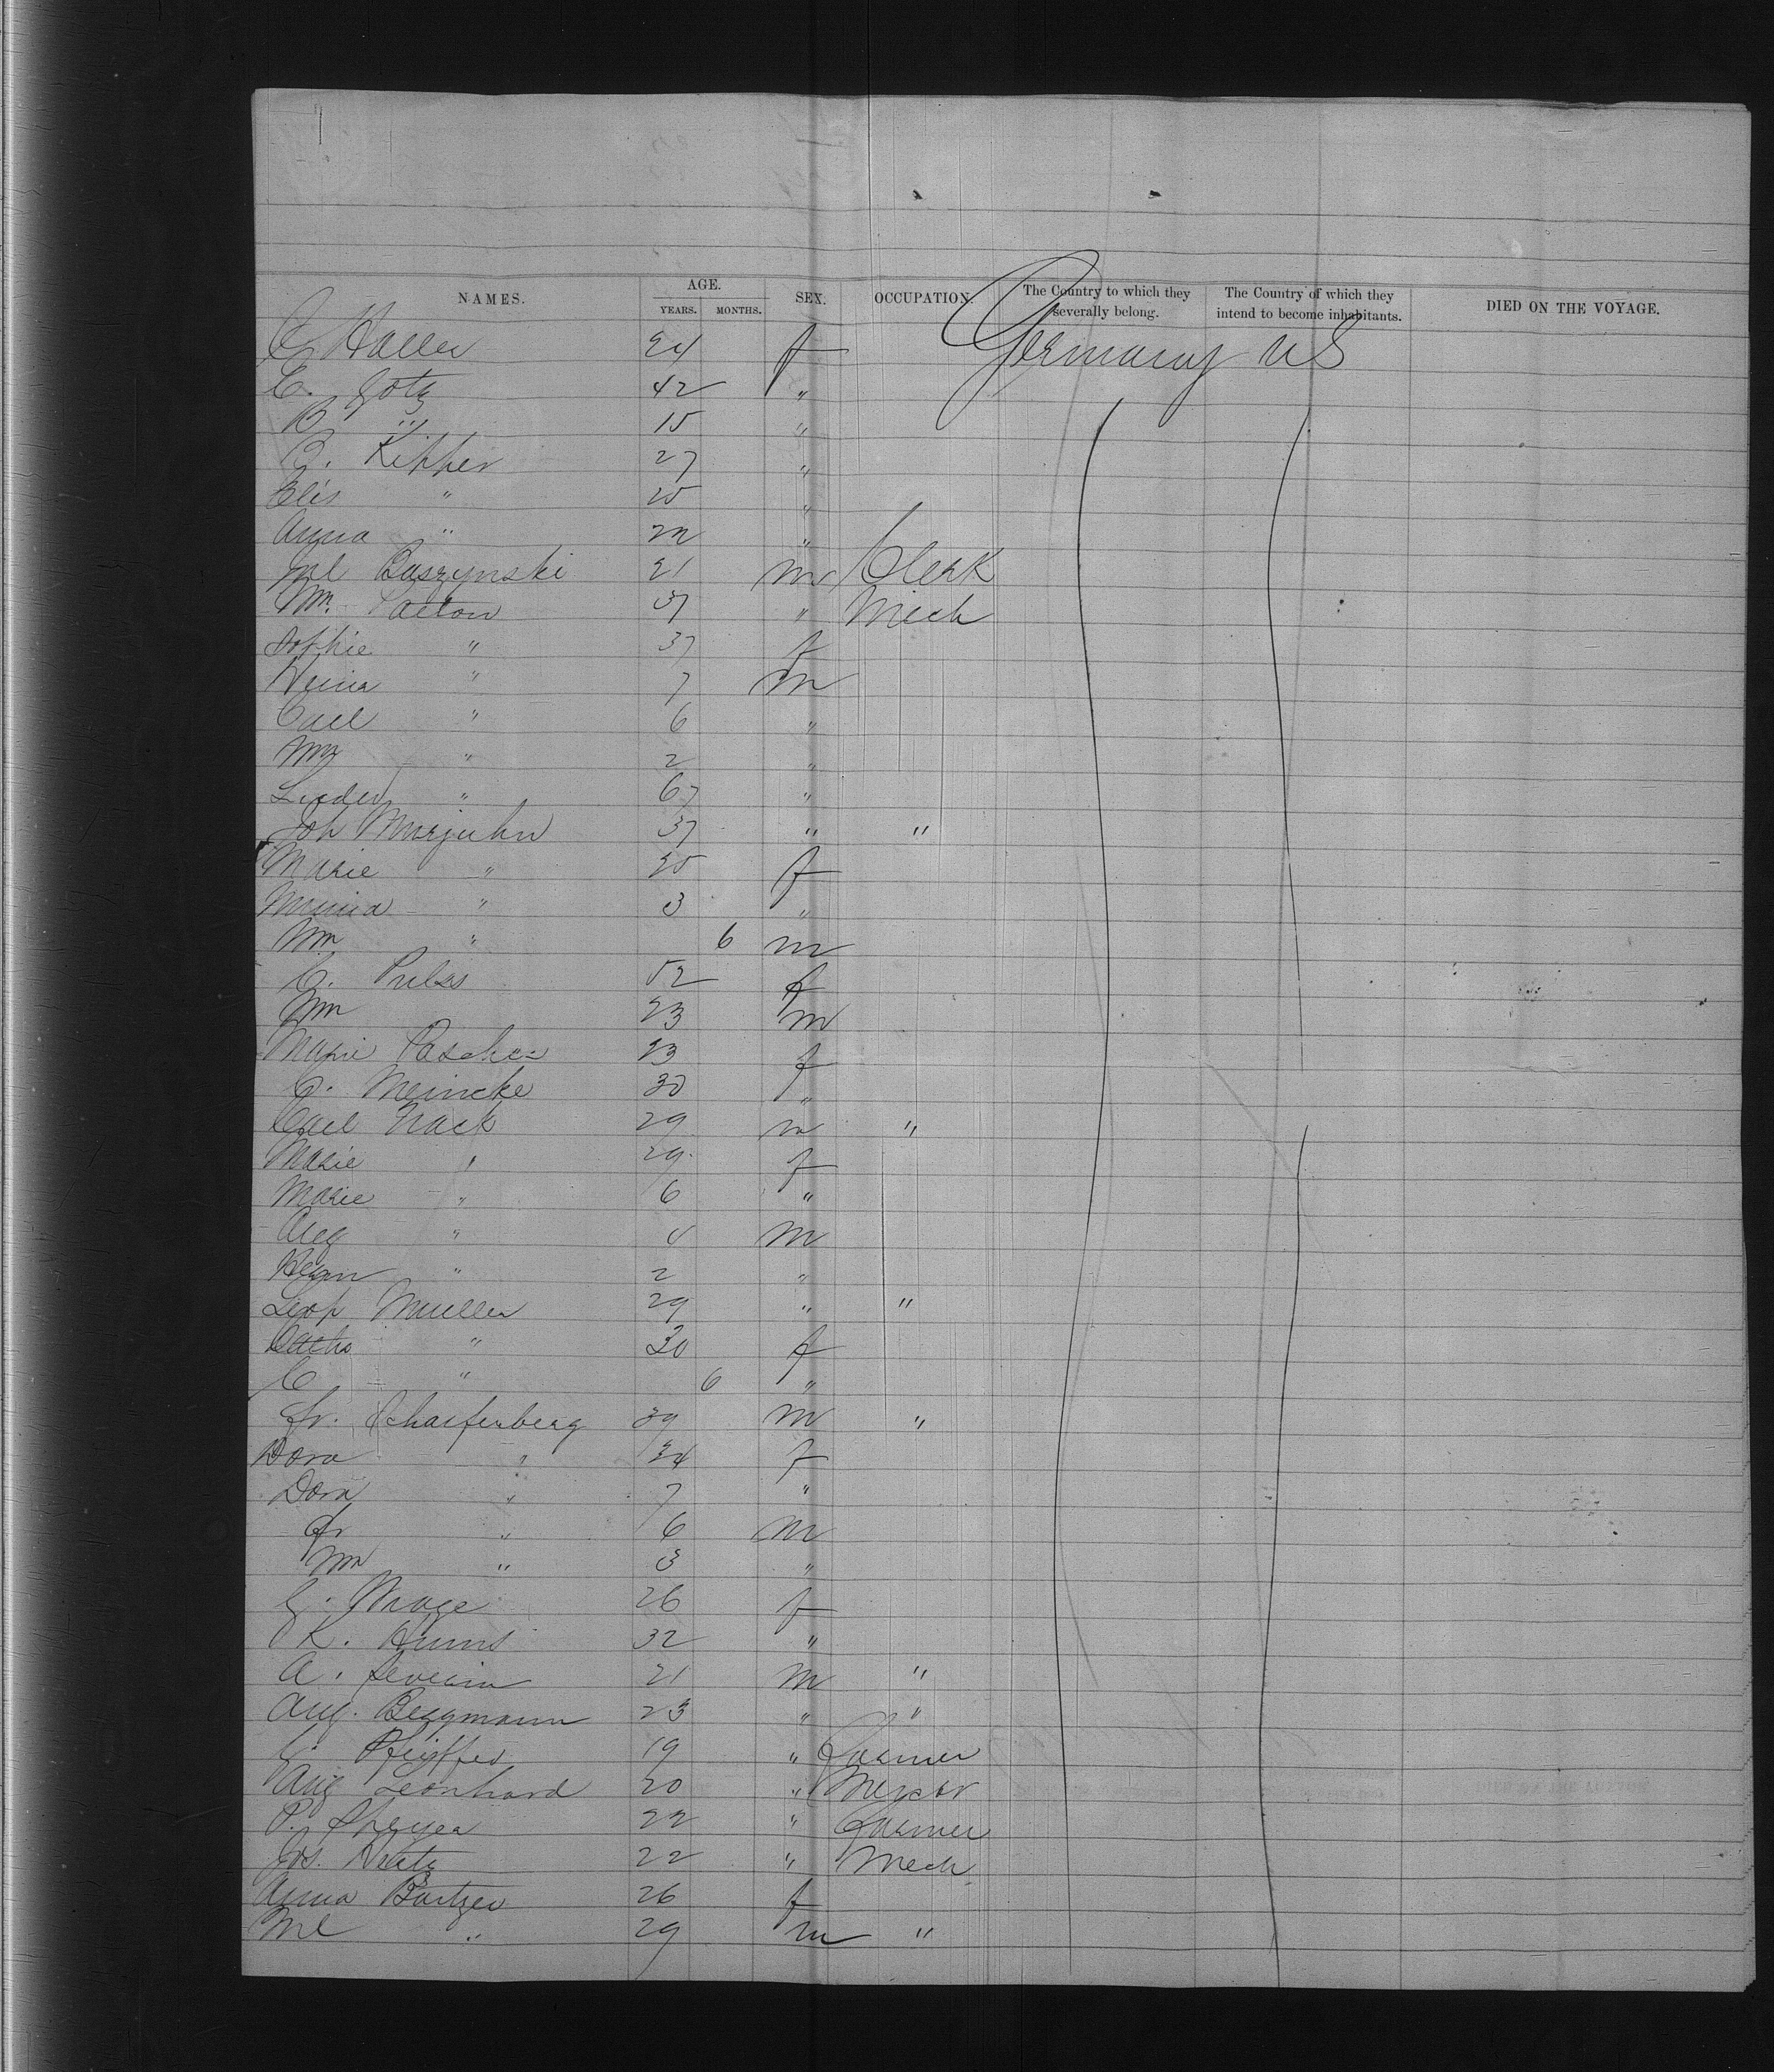 NAMES. AGE. SEX. OCCUPATION. The Country to which they severally belong. The Country of which they intend to become inhabitants. DIED ON THE VOYAGE.
YEARS. MONTHS.
C. Haller 24 f Germany U S
C. Gotz 42 "
B " 15 "
C. Kipper 27 "
Elis " 20 "
Anna " 22 "
Jul Baszynski 21 m Clerk
Wm. 37 " Mech
Sophie " 37 f
" 7 m
Carl " 6 "
Wm " 2 "
" 67 "
Joh Marjuhn 37 " "
Marie " 25 f
Minna " 3 "
Wm " 6 m
C. 52 f
Wm 23 m
Marie Paschen 23 f
C. Meincke 30 "
Carl Frack 29 m "
Marie " 29 f
Marie " 6 "
Aug " 4 m
Herm " 2 "
Leop Muller 29 " "
" 30 f
C " 6 "
Fr. Scharfenberg 39 m "
Dora " 34 f
Dora " 7 "
Fr " 6 m
Wm " 3 "
26 f
K. Harms 32 "
A. Severin 21 m "
Aug. Bergmann 23 " "
Pfeiffer 19 " Farmer
Aug Leonhard 20 "
P. Speyer 22 " Farmer
Jos. 22 " Mech
Anna Bartzer 26 f
" 29 m "